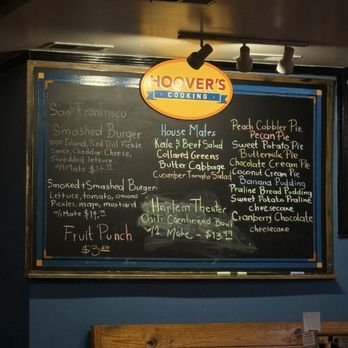 HOOVER'S
COOKING
San Francisco
Smashed Burger
1000 Island, Red Dill Pickle
Sauce, Cheddar Cheese,
Shredded lettuce
w/1 Mate $14.
Smoked + Smashed Burger
Lettuce, tomato, onions
Pickles, mayo, mustard
w/1 Mate $14.
Fruit Punch
$3.
House Mates
Kale & Beet Salad
Collard Greens
Butter Cabbage
Cucumber Tomato Salad
Harlem Theater
Chili Cornbread Bowl
w/1 Mate - $13.99
Peach Cobbler Pie
Pecan Pie
Sweet Potato Pie
Buttermilk Pie
Chocolate Cream Pie
Coconut Cream Pie
Banana Pudding
Praline Bread Pudding
Sweet Potato Praline
cheesecake
Cranberry Chocolate
cheesecake